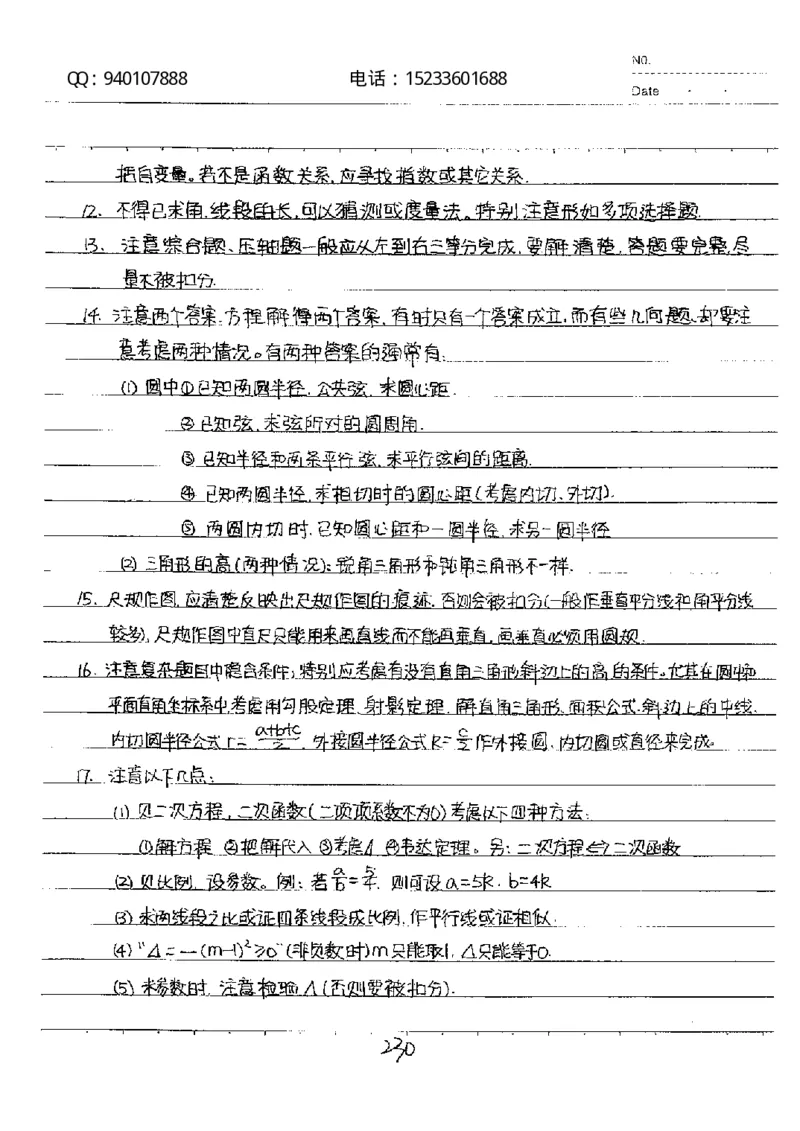 QQ：940107888 电话：15233601688 NO.
Date
把自变量。若不是函数关系，应寻找指数或其它关系.
12. 不得已求角，线段的长，可以猜测或度量法。特别注意形如多项选择题.
13. 注意综合题、压轴题一般应从左到右三等分完成，要解清楚，答题要完整，尽
量不被扣分.
14. 注意两个答案，方程解得两个答案，有时只有一个答案成立，而有些几何题，却要注
意考虑两种情况。有两种答案的通常有：
(1) 圆中①已知两圆半径，公共弦，求圆心距.
② 已知弦，求弦所对的圆周角.
③ 已知半径和两条平行弦，求平行弦间的距离.
④ 已知两圆半径，求相切时的圆心距(考虑内切、外切).
⑤ 两圆内切时，已知圆心距和一圆半径，求另一圆半径
(2) 三角形的高(两种情况)：锐角三角形和钝角三角形不一样.
15. 尺规作图，应清楚反映出尺规作图的痕迹，否则会被扣分(一般作垂直平分线和角平分线
较多)，尺规作图中直尺只能用来画直线而不能画垂直，画垂直必须用圆规.
16. 注意复杂题目中隐含条件，特别应考虑有没有直角三角形斜边上的高的条件。尤其在圆中和
平面直角坐标系中考虑用勾股定理、射影定理、解直角三角形、面积公式，斜边上的中线、
内切圆半径公式 r=(a+b+c)/2，外接圆半径公式 R=c/2 作外接圆、内切圆或直径来完成。
17. 注意以下几点：
(1) 见二次方程，二次函数(二项项系数不为0)考虑以下四种方法：
①解方程 ②把解代入 ③考虑Δ ④韦达定理。另：二次方程⇔二次函数
(2) 见比例，设参数。例：若a/b=5/4，则可设a=5k，b=4k
(3) 求两线段之比或证四条线段成比例，作平行线或证相似.
(4) "Δ=-(m-1)²≥0"(非负数时)m只能取1，Δ只能等于0.
(5) 求参数时，注意检验Δ(否则要被扣分).
230